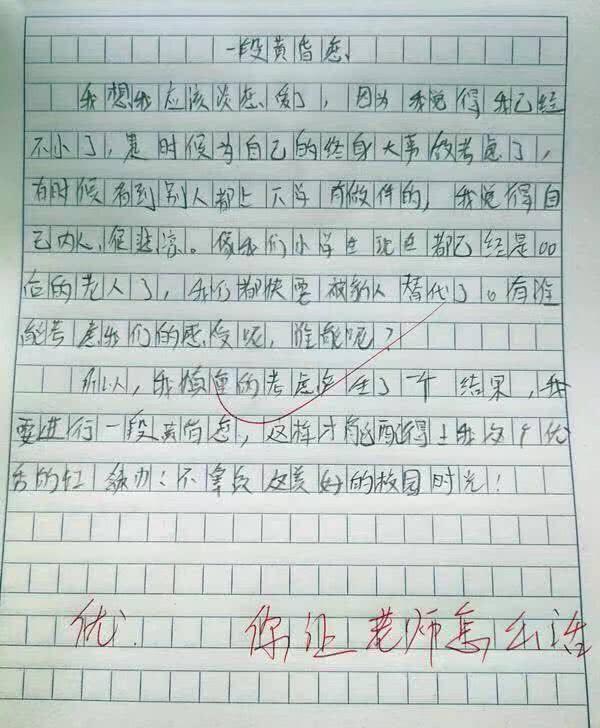 一段黄昏恋
我想我应该谈恋爱了，因为我觉得我已经
不小了，是时候为自己的终身大事做考虑了，
有时候看到别人都上下学有做伴的，我觉得自
己内人很悲凉。像我们小学生现在都已经是00
后的老人了，我们都快要被别人替代了。有谁
能考虑我们的感受呢，谁能呢？
所以，我慎重的考虑产生了一个结果，我
要进行一段黄昏恋，这样才能配得上我这个优
秀的红领巾！不辜负这美好的校园时光！
优 你让老师怎么活